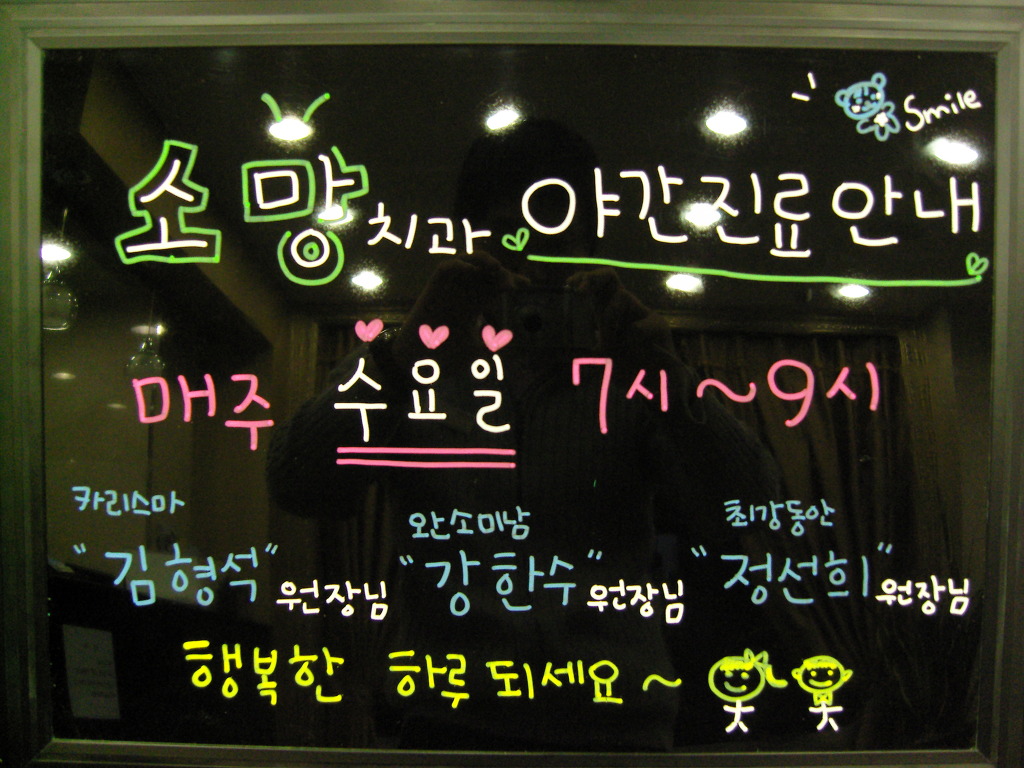 Smile
소망치과 야간진료안내
매주 수요일 7시~9시
카리스마 완소미남 최강동안
"김형석" 원장님 "강한수" 원장님 "정선희" 원장님
행복한 하루 되세요~